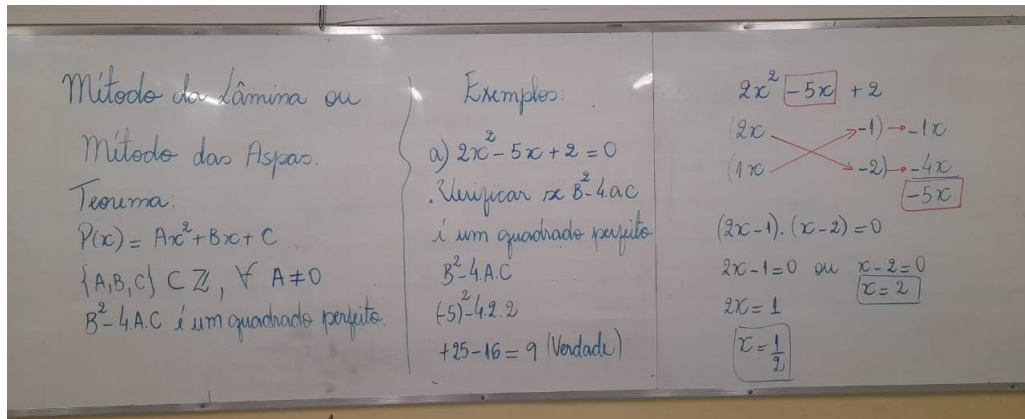 Método da Lâmina ou
Método das Aspas.
Teorema:
P(x) = Ax² + Bx + C
{A,B,C} ⊂ ℤ, ∀ A ≠ 0
B² - 4.A.C é um quadrado perfeito.
Exemplos:
a) 2x² - 5x + 2 = 0
. Verificar se B² - 4.a.C
é um quadrado perfeito
B² - 4.A.C
(-5)² - 4.2.2
+25 - 16 = 9 (Verdade)
2x² -5x + 2
(2x -1) → -1x
(1x -2) → -4x
-5x
(2x-1).(x-2) = 0
2x-1=0 ou x-2=0
x=2
2x=1
x=1/2